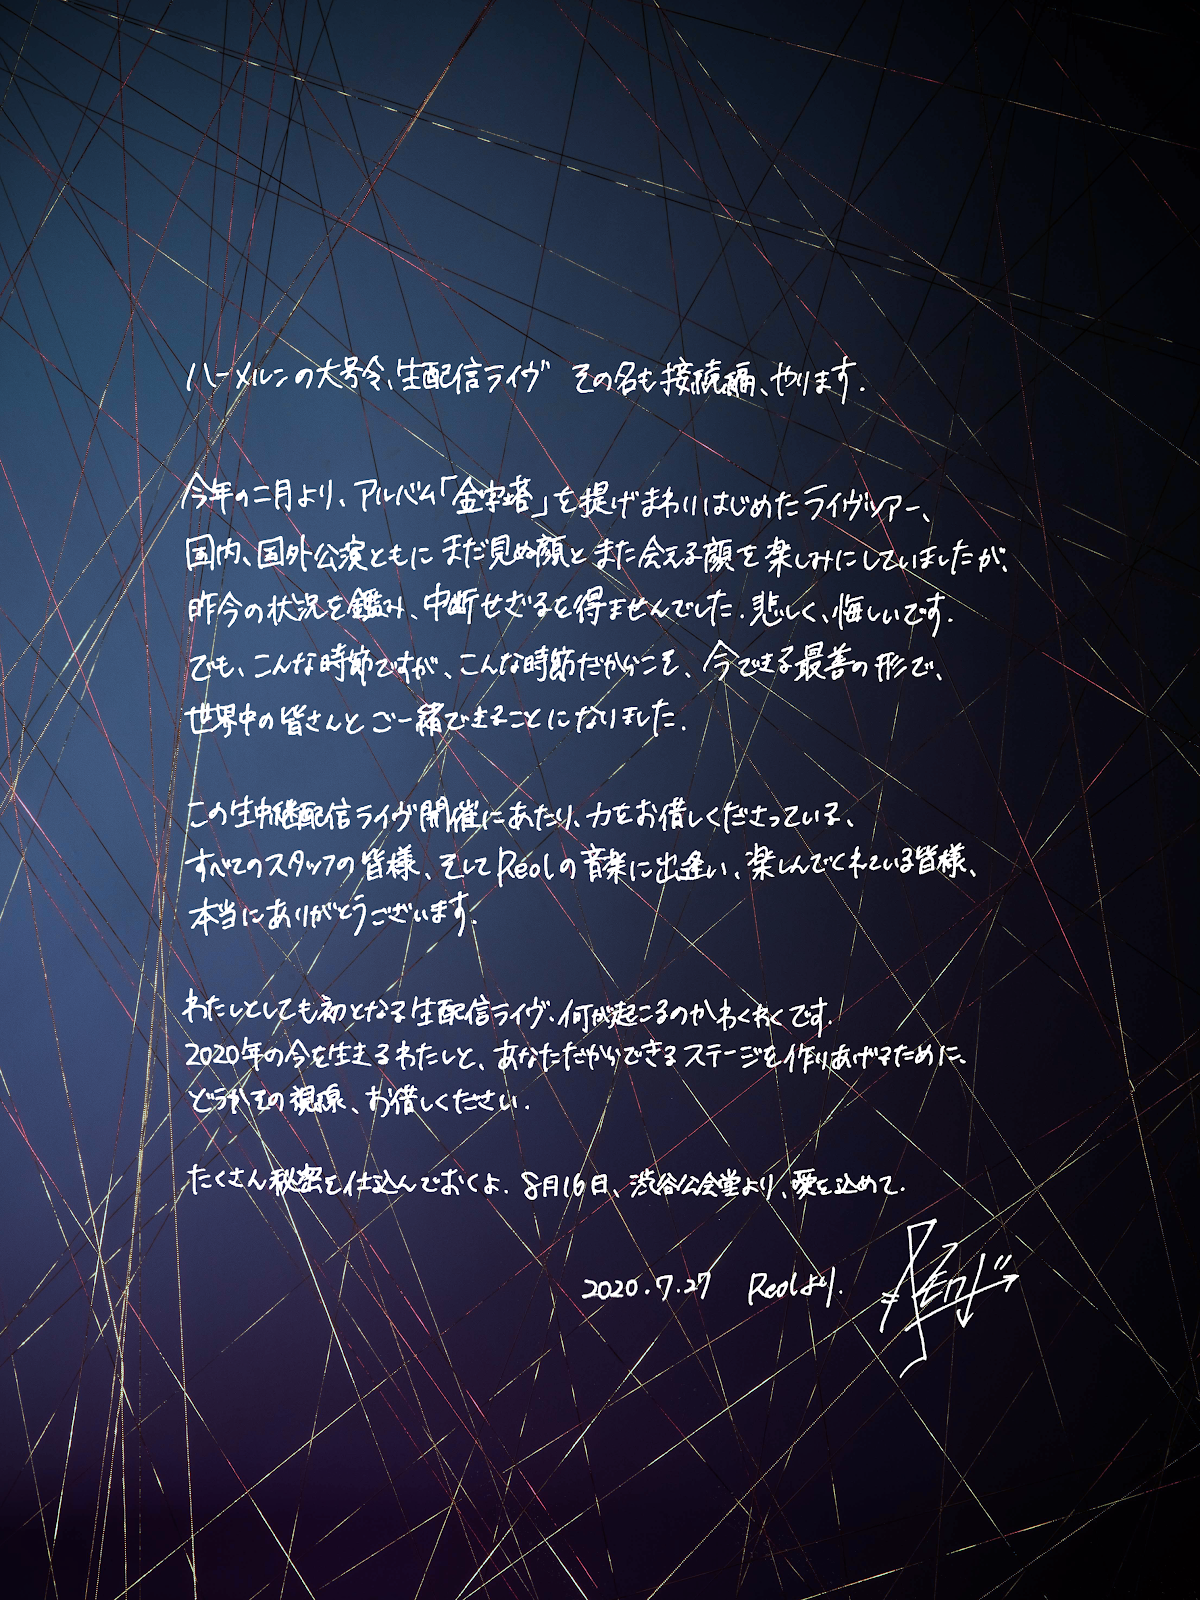 ハーメルンの大号令、生配信ライヴ その名も接続編、やります.
今年の二月より、アルバム「金字塔」を提げまわりはじめたライヴツアー、
国内、国外公演ともに まだ見ぬ顔と また会える顔を楽しみにしていましたが、
昨今の状況を鑑み、中断せざるを得ませんでした.悲しく、悔しいです.
でも、こんな時節ですが、こんな時節だからこそ、今できる最善の形で、
世界中の皆さんと ご一緒できることになりました.
この生中継配信ライヴ開催にあたり、力をお借しくださっている、
すべてのスタッフの皆様、そしてReolの音楽に出逢い、楽しんでくれている皆様、
本当にありがとうございます.
わたしとしても初となる生配信ライヴ、何が起こるのかわくわくです.
2020年の今を生きるわたしと、あなただからできるステージを作りあげるために、
どうかその視線、お借しください.
たくさん秘密を仕込んでおくよ. 8月16日、渋谷公会堂より、愛を込めて.
2020.7.27 Reolより.